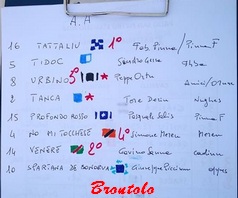 A.A
16 TATTALIU 1° Fab. Pinna / Pinna F
5 TIDOC Sandro Gessa
8 URBINO 3° Peppe
2 TANCA Tore Deriu
15 PROFONDO ROSSO Pasquale Salis Pinna F
4 NO MI TOCCHESE 4° Simone Moren Moren
14 VENERE 2° Gavino Sanna
10 SPARTANA DE BONORVA Giuseppe Piccinnu
Brontolo